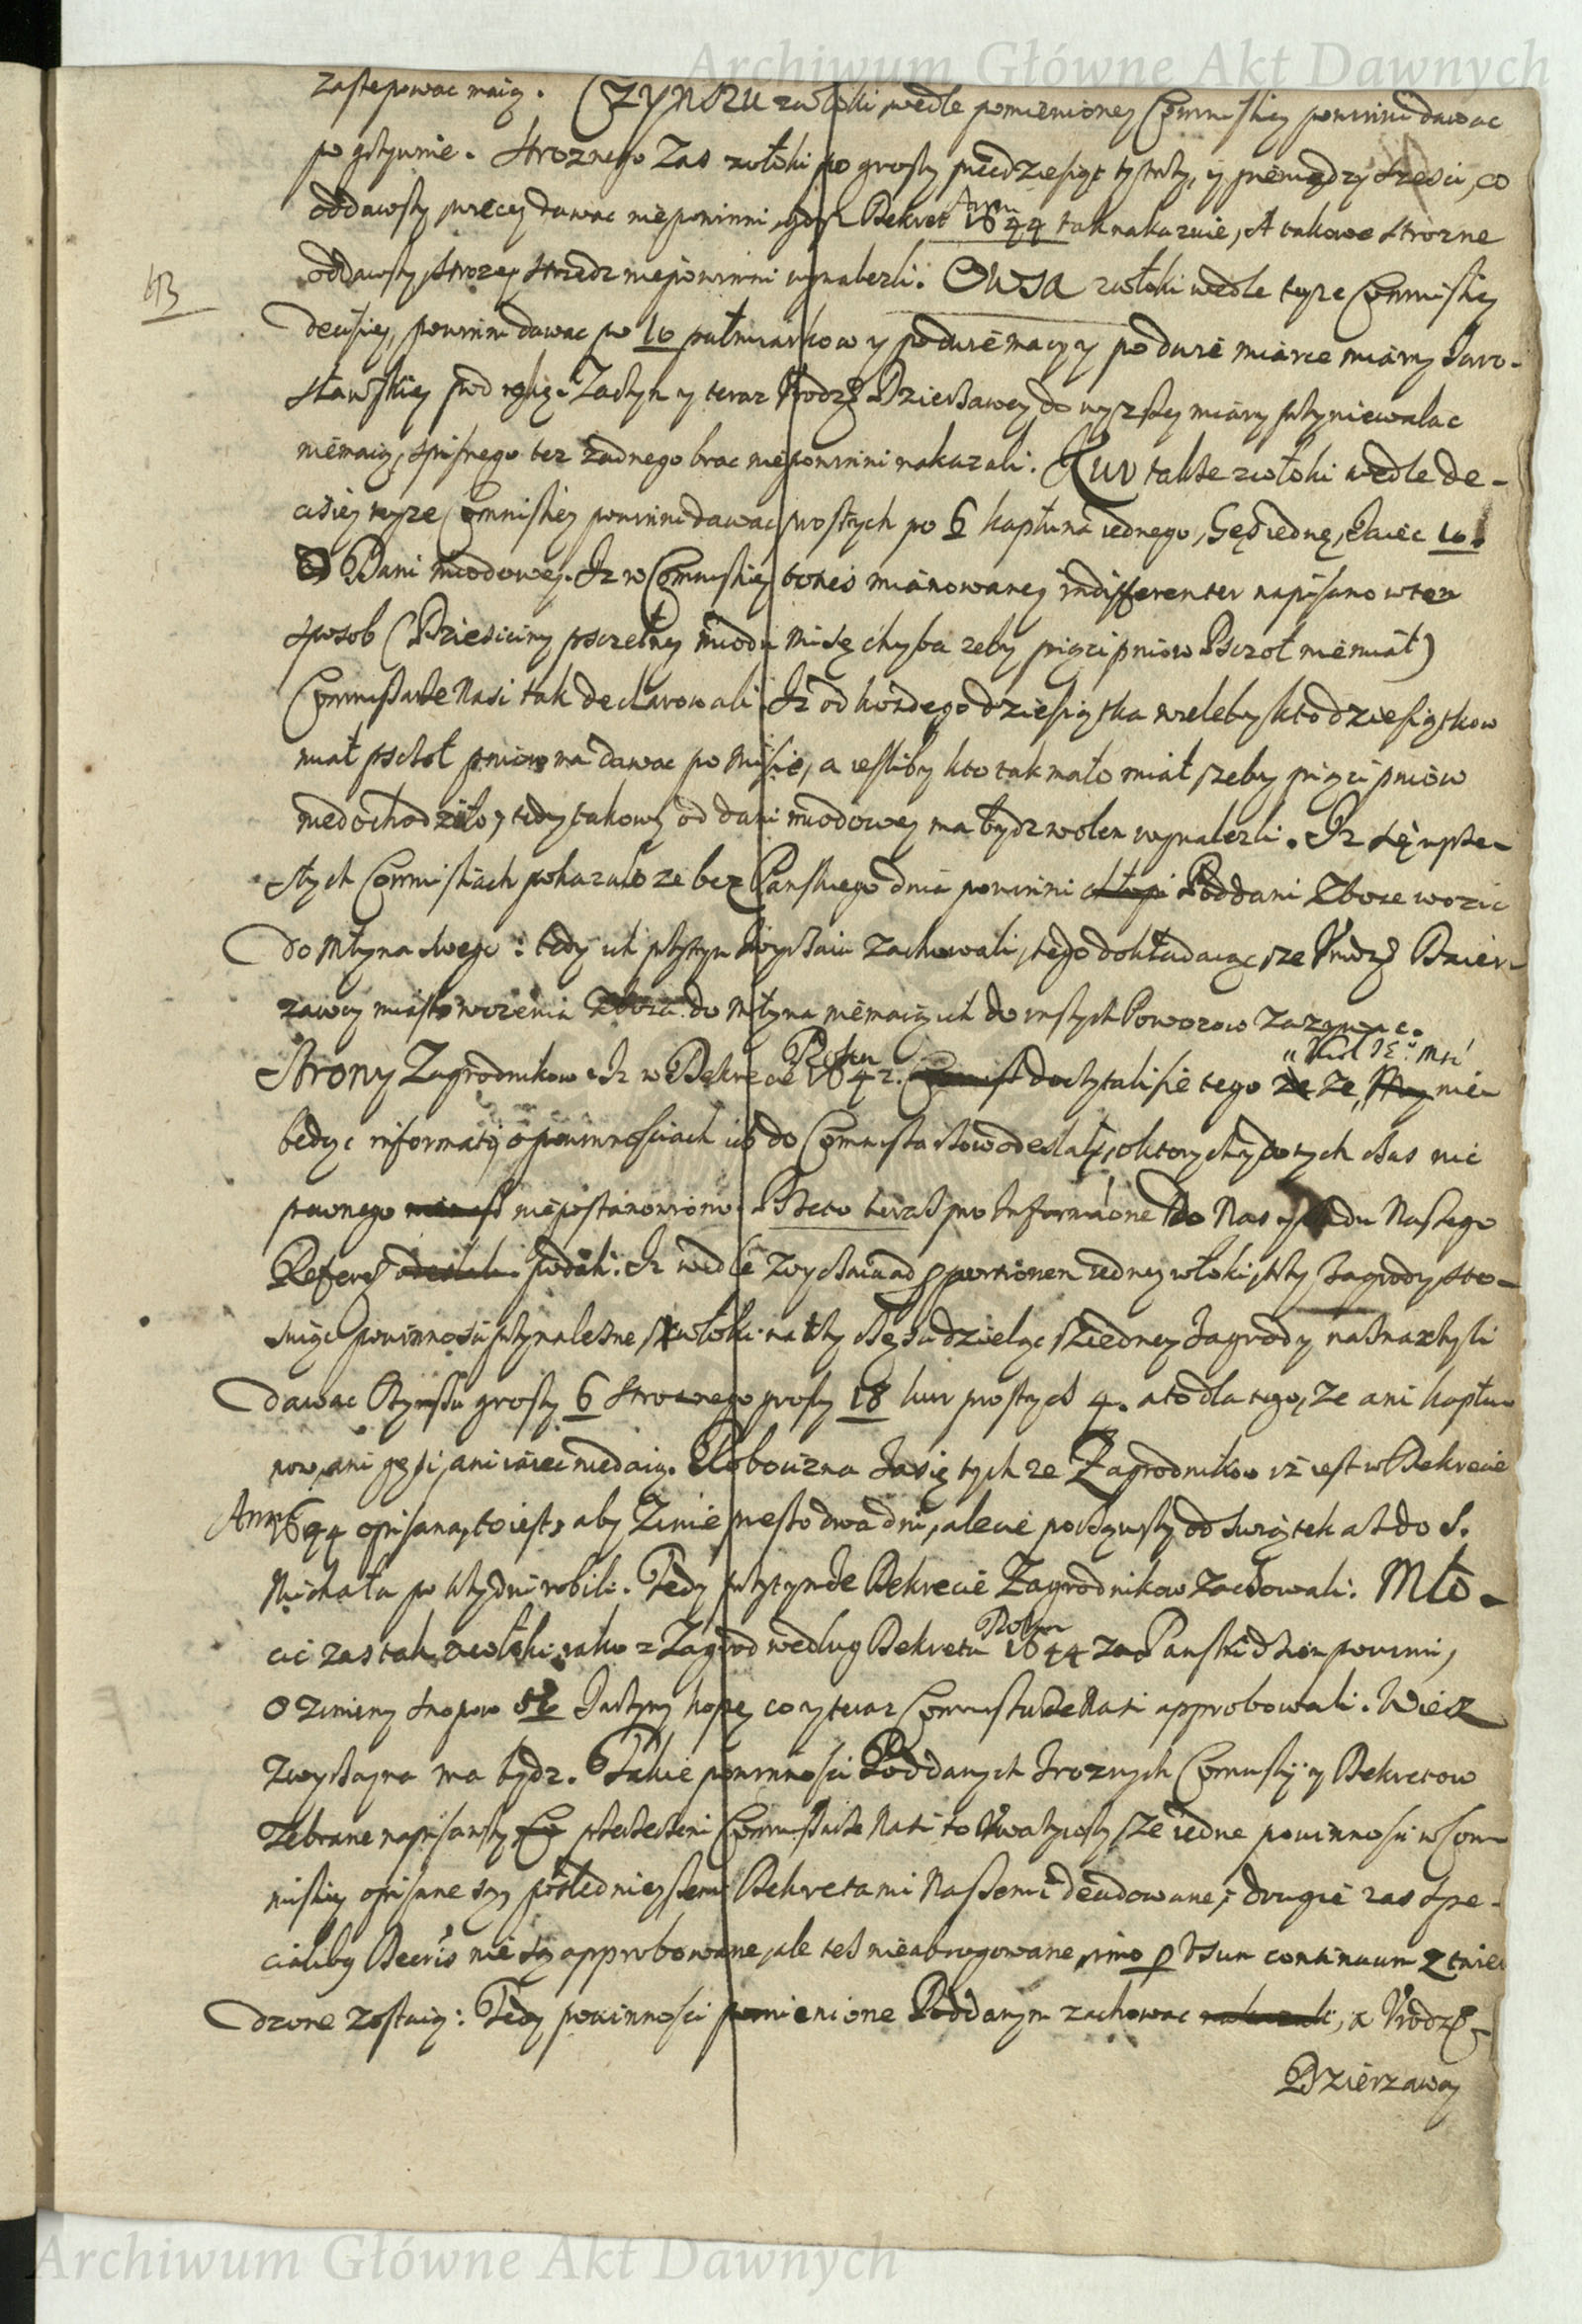 Archiwum Główne Akt Dawnych
zastepowac maią. Czynszu z włoki wedle pomienioney Commissiey powinni dawac
po grzywnie. Stroznego zas z włoki po groszy piędziesiąt y trzy, y pieniędzy szesci, co
oddawszy więcey dawac niepowinni, gdysz Dekret Anni 1644 tak nakazuie, A takowe strozne
oddawszy, strozey strzedz niepowinni wynalezli. Owsa z włoki wedle teyze Commissiey
63
decisiey, powinni dawac po 10 pułmiarkow y po dwie macy y po dwie miarce miary Jaro-
sławskiey pod ręką. Zaczym y teraz Vrodz. Dzierzawcy do wyzszey miary przyniewalac
niemaią, spisnego tez zadnego brac niepowinni nakazali. Kur takze z włoki wedle de-
cisiey teyze Commissiey powinni dawac prostych po 6 kapłuna iednego, Gęś iednę, Iaiec 10.
O Dani miodowey. Iz w Commissiey toties mianowaney indifferenter napisano w ten
sposob (Dziesieciny pszczelney miodu misę chyba zeby pięci pniow Pszczoł niemiał)
Commissarze Nasi tak declarowali Iz od kozdego dziesiątka wieleby kto dziesiątkow
miał pszczoł pniow ma dawac po Misie, a iesliby kto tak mało miał, zeby pięci pniow
niedochodziło, tedy takowy od dani miodowey ma bydz wolen wynalezli. Iz się w prze-
szłych Commissiach pokazało ze bez Panskiego dnia powinni chłopi Poddani Zboze wozic
do Młyna swego: tedy ich przy tym zwyczaiu zachowali, tego dokładaiąc, ze Vrodz. Dzier-
zawcy miasto wozenia Zboza do Młyna niemaią ich do inszych Powozow zazywac.
Strony Zagrodnikow. Iz w Dekrecie Roku 1642. doczytali się tego ze ze nie
będąc informati o powinnosciach ich do Commissarzow odesłali, o ktorych y do tych czas nic
pewnego niepostanowiono. Przeto teraz pro Informatione do Nas y Sądu Naszego
Refer. podali. Iz wedle zwyczaiu ad proportionem iedney włoki, trzy Zagrody sto-
suiąc powinnosci przynalezne, z włoki na trzy częsci dzieląc, z iedney Zagrody naznaczyli
dawac Czynszu groszy 6 Stroznego groszy 18 kur prostych 4. a to dla tego, ze ani kapłu-
now, ani gęsi, ani iaiec niedaią. Robocizna zasię tych ze Zagrodnikow iz iest w Dekrecie
Anni 1644 opisana, to iest, aby Zimie pieszo dwa dni, a lecie począwszy od swiątek az do S.
Michała po trzy dni robili. Tedy przy tymze Dekrecie Zagrodnikow zachowali. Mło-
cic zas tak z włoki iako z Zagrod według Dekretu Roku 1644 za Panski dzien powinni,
Oziminy snopow Jarzyny kopę co y teraz Commissarze Nasi approbowali. Wież
zwyczayna ma bydz. Takie powinnosci Poddanych z roznych Commissyi y Dekretow
zebrane napisawszy Commissarze Nasi to Vwazywszy, ze iedne powinnosci w Com-
missiey opisane są, poslednieyszemi Dekretami Naszemi decidowane, drugie zas spe-
cialiby Decris nie są approbowane, ale tez nieabrogowane, imo p Vsum continuum ztwier-
dzone zostaią: Tedy powinnosci pomienione Poddanym zachowac nakazali, a Vrodz.
Dzierzawcy
Archiwum Główne Akt Dawnych